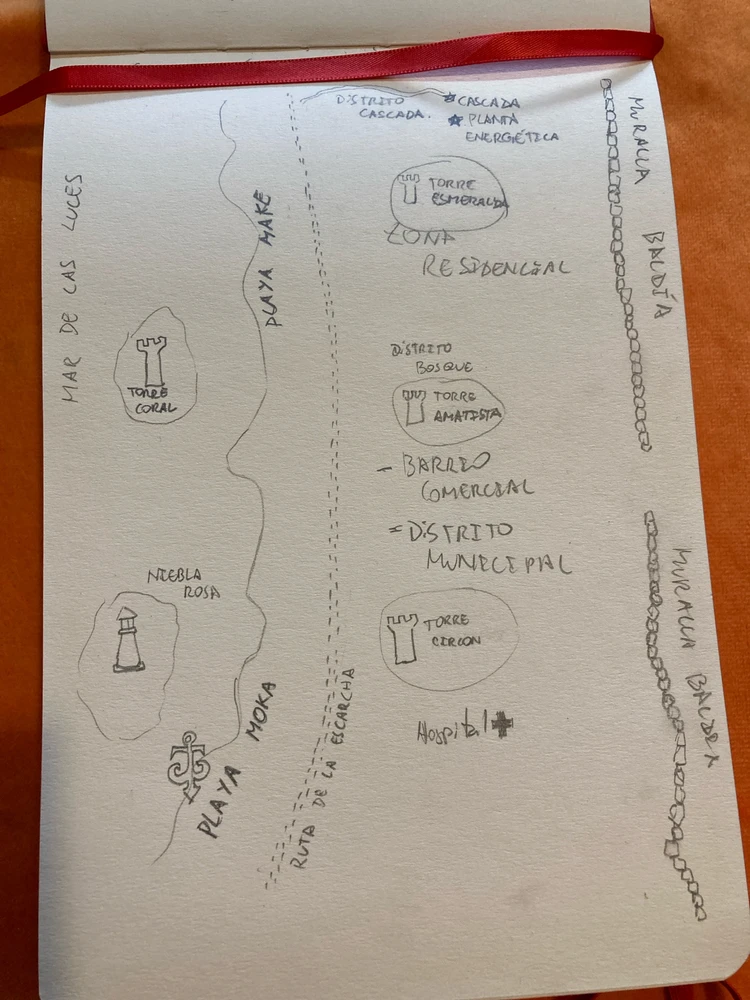 DISTRITO
CASCADA.
CASCADA
PLANTA
ENERGÉTICA
MURALLA BALDÍA
MAR DE LAS LUCES
PLAYA MAKE
TORRE
ESMERALDA
ZONA
RESIDENCIAL
TORRE
CORAL
DISTRITO
BOSQUE
TORRE
AMATISTA
- BARRIO
COMERCIAL
= DISTRITO
MUNICIPAL
NIEBLA
ROSA
MURALLA BALDÍA
TORRE
CIRCON
PLAYA MOKA
RUTA DE LA ESCARCHA
Hospital